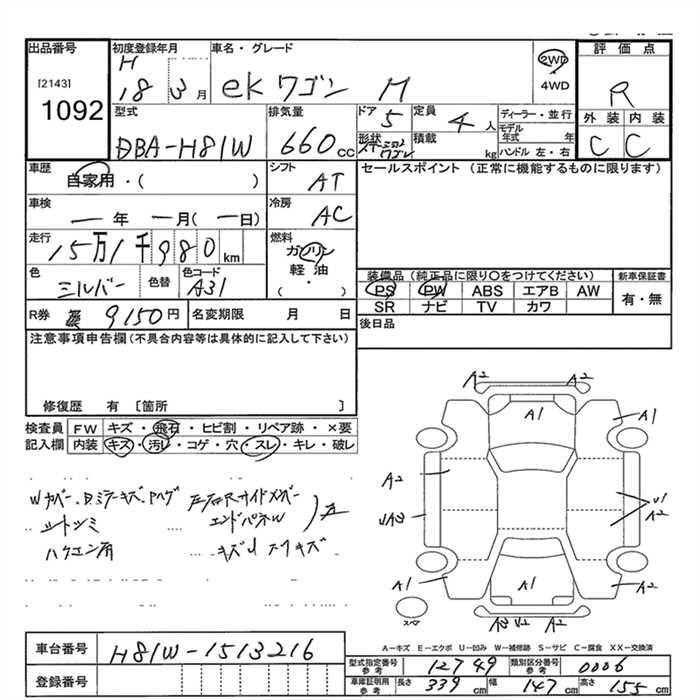 出品番号 初度登録年月 車名・グレード 評価点
[2143] H 18 3月 ekワゴン M 2WD 4WD R
1092
型式 排気量 ドア 定員 ディーラー・並行 外装 内装
DBA-H81W 660cc 5 4人 モデル年式 年 C C
形状 積載 kg ハンドル 左・右
車歴 シフト セールスポイント (正常に機能するものに限ります)
自家用・( ) AT
車検 冷房
年 月(日) AC
走行 燃料
15万1千980km ガソリン
軽油
・
色 色替 色コード 装備品(純正品に限り○をつけてください) 新車保証書
シルバー A31 PS PW ABS エアB AW 有・無
SR ナビ TV カワ
R券 9150円 名変期限 月 日 後日品
注意事項申告欄(不具合内容等は具体的に記入して下さい)
修復歴 有 〔箇所 〕
検査員 FW キズ・飛石・ヒビ割・リペア跡・×要
記入欄 内装 キズ・汚レ・コゲ・穴・スレ・キレ・破レ
シートシミ エンドパネル
A2 A2
A1 A1
A2 U1
A2
A1 A1 A2
スペア A3 U2 A2
A−キズ E−エクボ U−凹み W−補修跡 S−サビ C−腐食 XX−交換済
車台番号 H81W-1513216
型式指定番号 参考 12749 類別区分番号 参考 0006
登録番号 車庫証明用 参考 長さ 339cm 幅 147cm 高さ 155cm